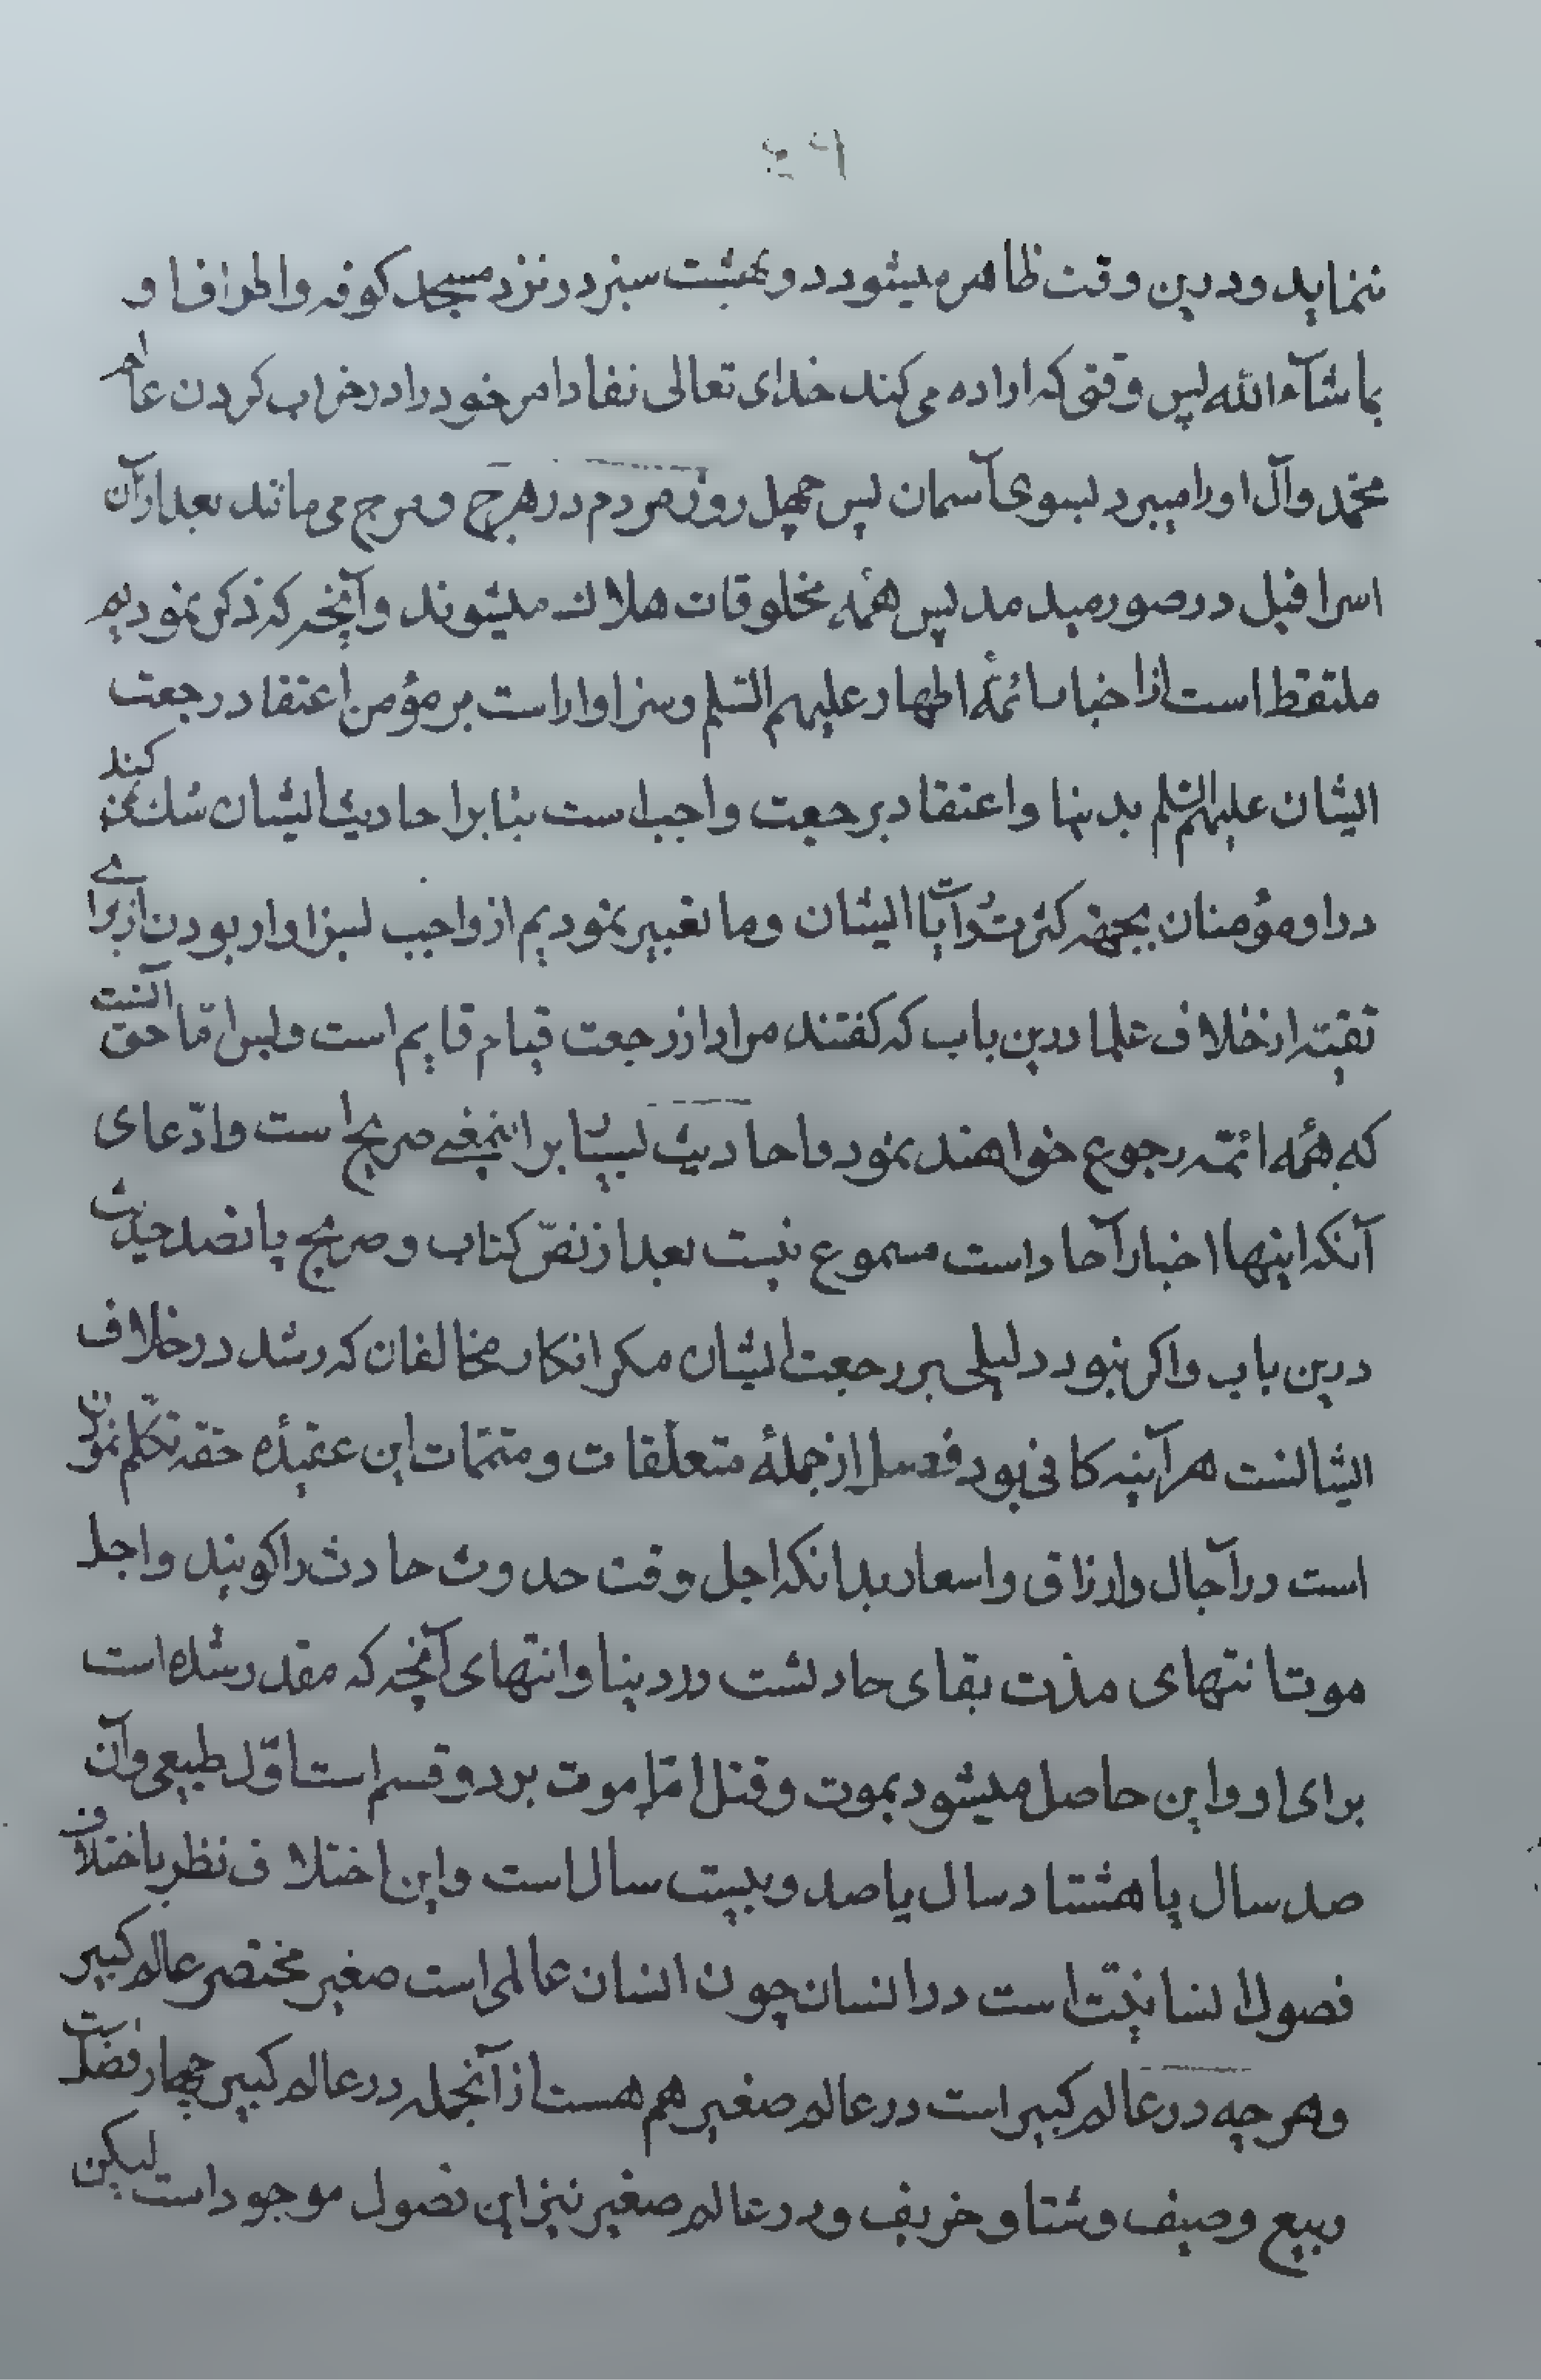 ننماید و درین وقت ظاهر میشود دو بهشت سبز در نزد مسجد کوفه و اطراف او
بما شآء الله پس وقتی که اراده می کند خدای تعالی نفاد امر خود را در خراب کردن عالم
محمّد و آل او را میبرد بسوی آسمان پس چهل روز مردم در هرج و مرج می مانند بعد از آن
اسرافیل در صور میدمد پس همهٔ مخلوقات هلاک میشوند و آنچه که ذکر نمودیم
ملتقط است از اخبار ائمّهٔ اطهار علیهم السّلم و سزاوار است بر مؤمن اعتقاد رجعت
ایشان علیهم السّلم بدنیا و اعتقاد برجعت واجب است بنا بر احادیث ایشان شک نمی کند
در او مؤمنان بجهة کثرت روایات ایشان و ما تعبیر نمودیم از واجب بسزاوار بودن از برای
تقیّه از خلاف علما درین باب که گفتند مراد از رجعت قیام قایم است و بس امّا حق آنست
که همهٔ ائمّه رجوع خواهند نمود و احادیث بسیار بر اینمعنی صریح است و ادّعای
آنکه اینها اخبار آحاد است مسموع نیست بعد از نصّ کتاب و صریح پانصد حدیث
درین باب و اگر نبود دلیلی بر رجعت ایشان مگر انکار مخالفان که رشد در خلاف
ایشانست هر آینه کافی بود فصل از جملهٔ متعلّقات و متمّمات این عقیدهٔ حقه تکلّم نمودن
است در آجال و ارزاق و اسعار بدانکه اجل وقت حدوث حادث را گویند و اجل
موت انتهای مدّت بقای حادثست در دنیا و انتهای آنچه که مقدر شده است
برای او و این حاصل میشود بموت و قتل امّا موت بر دو قسم است اوّل طبیعی و آن
صد سال یا هشتاد سال یا صد و بیست سال است و این اختلاف نظر باختلاف
فصول انسانیّت است در انسان چون انسان عالمی است صغیر مختصر عالم کبیر
و هر چه در عالم کبیر است در عالم صغیر هم هست از آنجمله در عالم کبیر چهار فصل است
ربیع و صیف و شتا و خریف و در عالم صغیر نیز این فصول موجود است لیکن